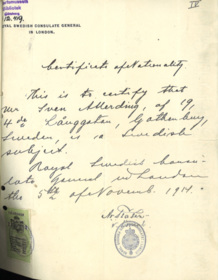 ROYAL SWEDISH CONSULATE GENERAL
IN LONDON.
IV
Certificate of Nationality
This is to certify that
Mr Sven Allerding, of 19,
4 de Långgatan, Gothenburg,
Sweden is a Swedish
subject.
Royal Swedish Consu-
late General in London
the 5th of Novemb. 1914.